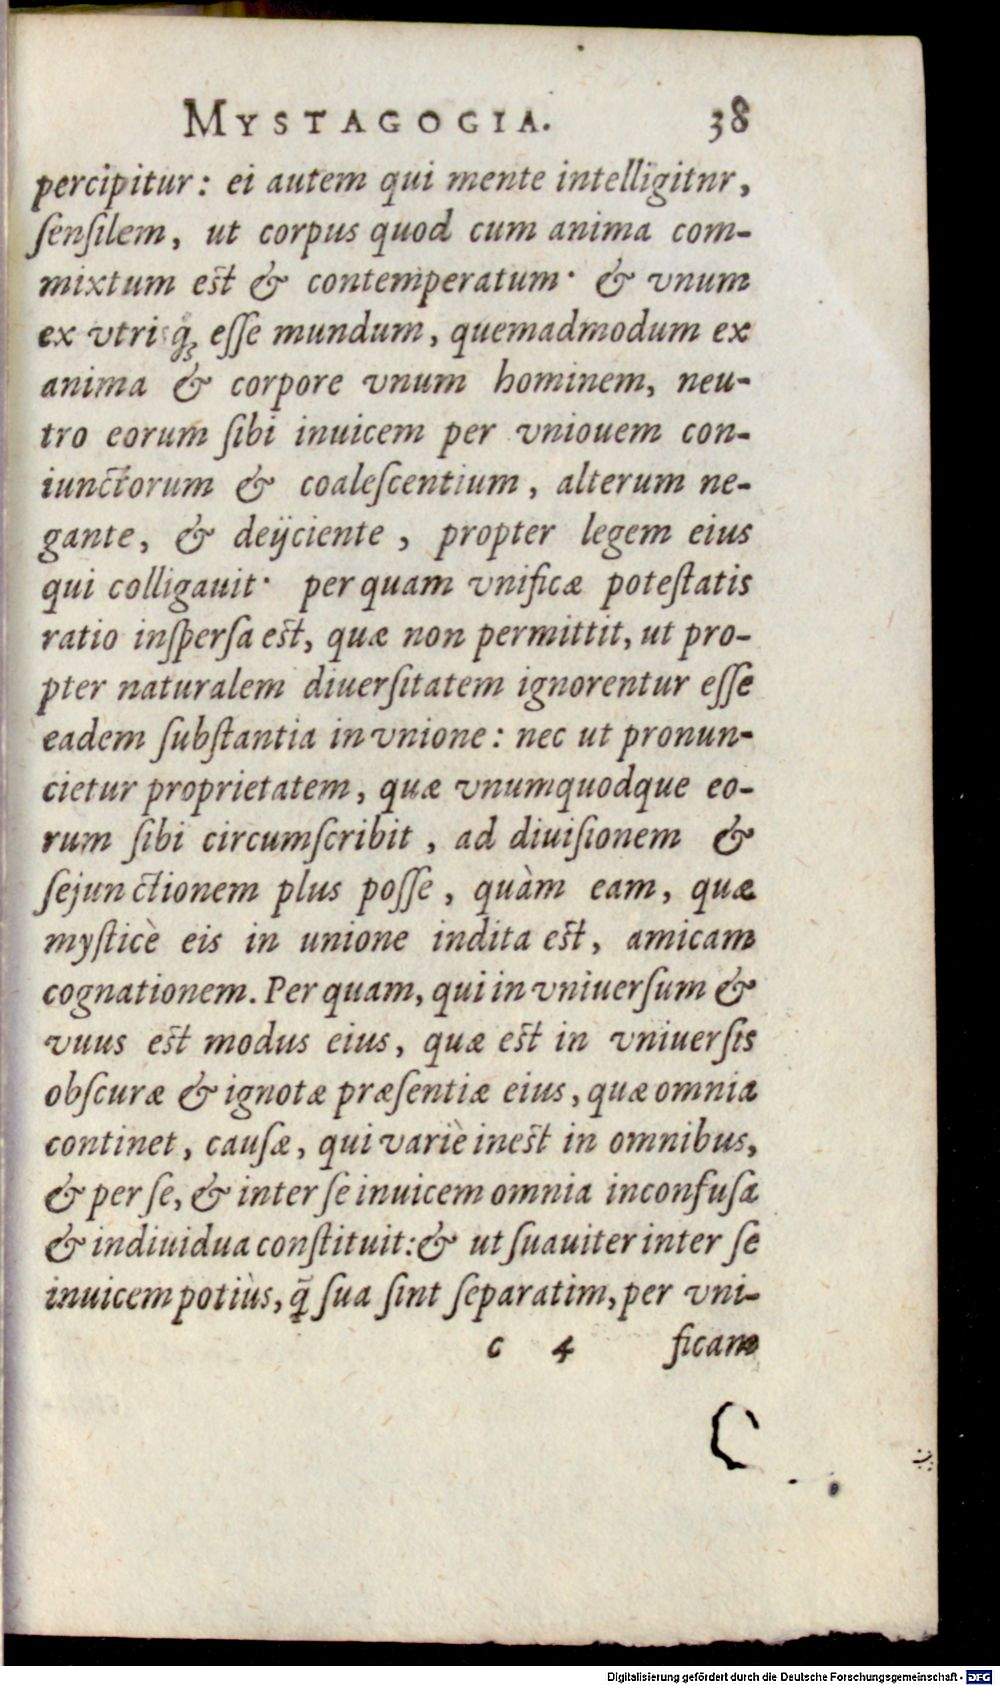 MYSTAGOGIA. 38
percipitur: ei autem qui mente intelligitnr,
ſenſilem, ut corpus quod cum anima com-
mixtum eſt & contemperatum· & vnum
ex vtriſq́ꝫ eſſe mundum, quemadmodum ex
anima & corpore vnum hominem, neu-
tro eorum ſibi inuicem per vniouem con-
iunctorum & coaleſcentium, alterum ne-
gante, & deijciente, propter legem eius
qui colligauit· per quam vnificæ poteſtatis
ratio inſperſa eſt, quæ non permittit, ut pro-
pter naturalem diuerſitatem ignorentur eſſe
eadem ſubſtantia in vnione: nec ut pronun-
cietur proprietatem, quæ vnumquodque eo-
rum ſibi circumſcribit, ad diuiſionem &
ſejunctionem plus poſſe, quàm eam, quæ
myſticè eis in unione indita eſt, amicam
cognationem. Per quam, qui in vniuerſum &
vuus eſt modus eius, quæ eſt in vniuerſis
obſcuræ & ignotæ præſentiæ eius, quæ omnia
continet, cauſæ, qui variè ineſt in omnibus,
& per ſe, & inter ſe inuicem omnia inconfuſa
& indiuidua conſtituit: & ut ſuauiter inter ſe
inuicem potiùs, q̃ ſua ſint ſeparatim, per vni-
c 4 ficam
Digitalisierung gefördert durch die Deutsche Forschungsgemeinschaft - DFG